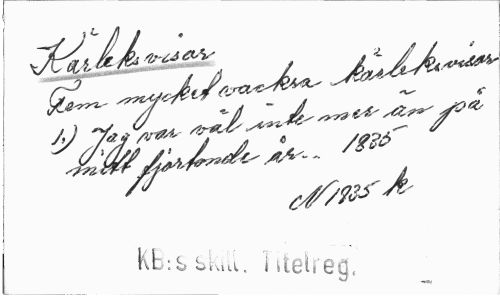 Kärleksvisar
Fem mycket vackra kärleksvisar
1.) Jag var väl inte mer än på
mitt fjortonde år... 1835
N 1835 k
KB:s skill. Titelreg.